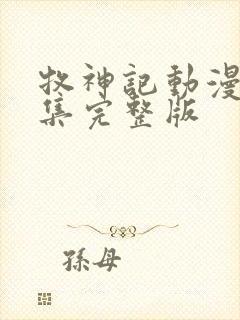 牧神記動漫
集完整版
孫母